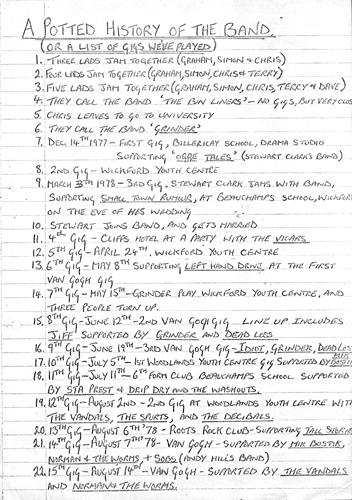 A POTTED HISTORY OF THE BAND.
(OR A LIST OF GIGS WE'VE PLAYED)
1. THREE LADS JAM TOGETHER (GRAHAM, SIMON & CHRIS)
2. FOUR LADS JAM TOGETHER (GRAHAM, SIMON, CHRIS & TERRY)
3. FIVE LADS JAM TOGETHER (GRAHAM, SIMON, CHRIS, TERRY & DAVE)
4. THEY CALL THE BAND 'THE BIN LINERS' - NO GIGS, BUT VERY CLOS
5. CHRIS LEAVES TO GO TO UNIVERSITY
6. THEY CALL THE BAND 'GRINDER'
7. DEC 14TH 1977 - FIRST GIG, BILLERICAY SCHOOL, DRAMA STUDIO
SUPPORTING 'OGRE TALES.' (STEWART CLARKS BAND)
8. 2ND GIG - WICKFORD YOUTH CENTRE
9. MARCH 3TH 1978 - 3RD GIG, STEWART CLARK JAMS WITH BAND,
SUPPORTING SMALL TOWN RUMOUR, AT BEAUCHAMPS SCHOOL, WICKFOR
ON THE EVE OF HIS WEDDING
10. STEWART JOINS BAND, AND GETS MARRIED
11. 4TH GIG - CLIFFS HOTEL AT A PARTY WITH THE VICARS
12. 5TH GIG - APRIL 24TH, WICKFORD YOUTH CENTRE
13. 6TH GIG - MAY 8TH SUPPORTING LEFT HAND DRIVE, AT THE FIRST
VAN GOGH GIG
14. 7TH GIG - MAY 15TH - GRINDER PLAY WICKFORD YOUTH CENTRE, AND
THREE PEOPLE TURN UP.
15. 8TH GIG - JUNE 12TH - 2ND VAN GOGH GIG LINE UP INCLUDES
JIFF SUPPORTED BY GRINDER AND DEAD LOSS.
16. 9TH GIG - JUNE 19TH - 3RD VAN GOGH GIG - IDIOT, GRINDER, DEAD LOS
17. 10TH GIG - JULY 5TH - 1ST WOODLANDS YOUTH CENTRE GIG SUPPORTED BY MIK BOSTIK
18. 11TH GIG - JULY 11TH - 6TH FORM CLUB BEAUCHAMPS SCHOOL SUPPORTED
BY STA PREST & DRIP DRY AND THE WASHOUTS.
19. 12TH GIG - AUGUST 2ND - 2ND GIG AT WOODLANDS YOUTH CENTRE WITH
THE VANDALS, THE SPURTS, AND THE DECIBALS.
20. 13TH GIG - AUGUST 6TH '78 - ROUTS ROCK CLUB - SUPPORTING TALL STORIE
21. 14TH GIG - AUGUST 7TH 78 - VAN GOGH - SUPPORTED BY MIK BOSTIK,
NORMAN & THE WORMS, + SODS (ANDY HILL'S BAND)
22. 15TH GIG - AUGUST 14TH - VAN GOGH - SUPPORTED BY THE VANDALS
AND NORMAN & THE WORMS.